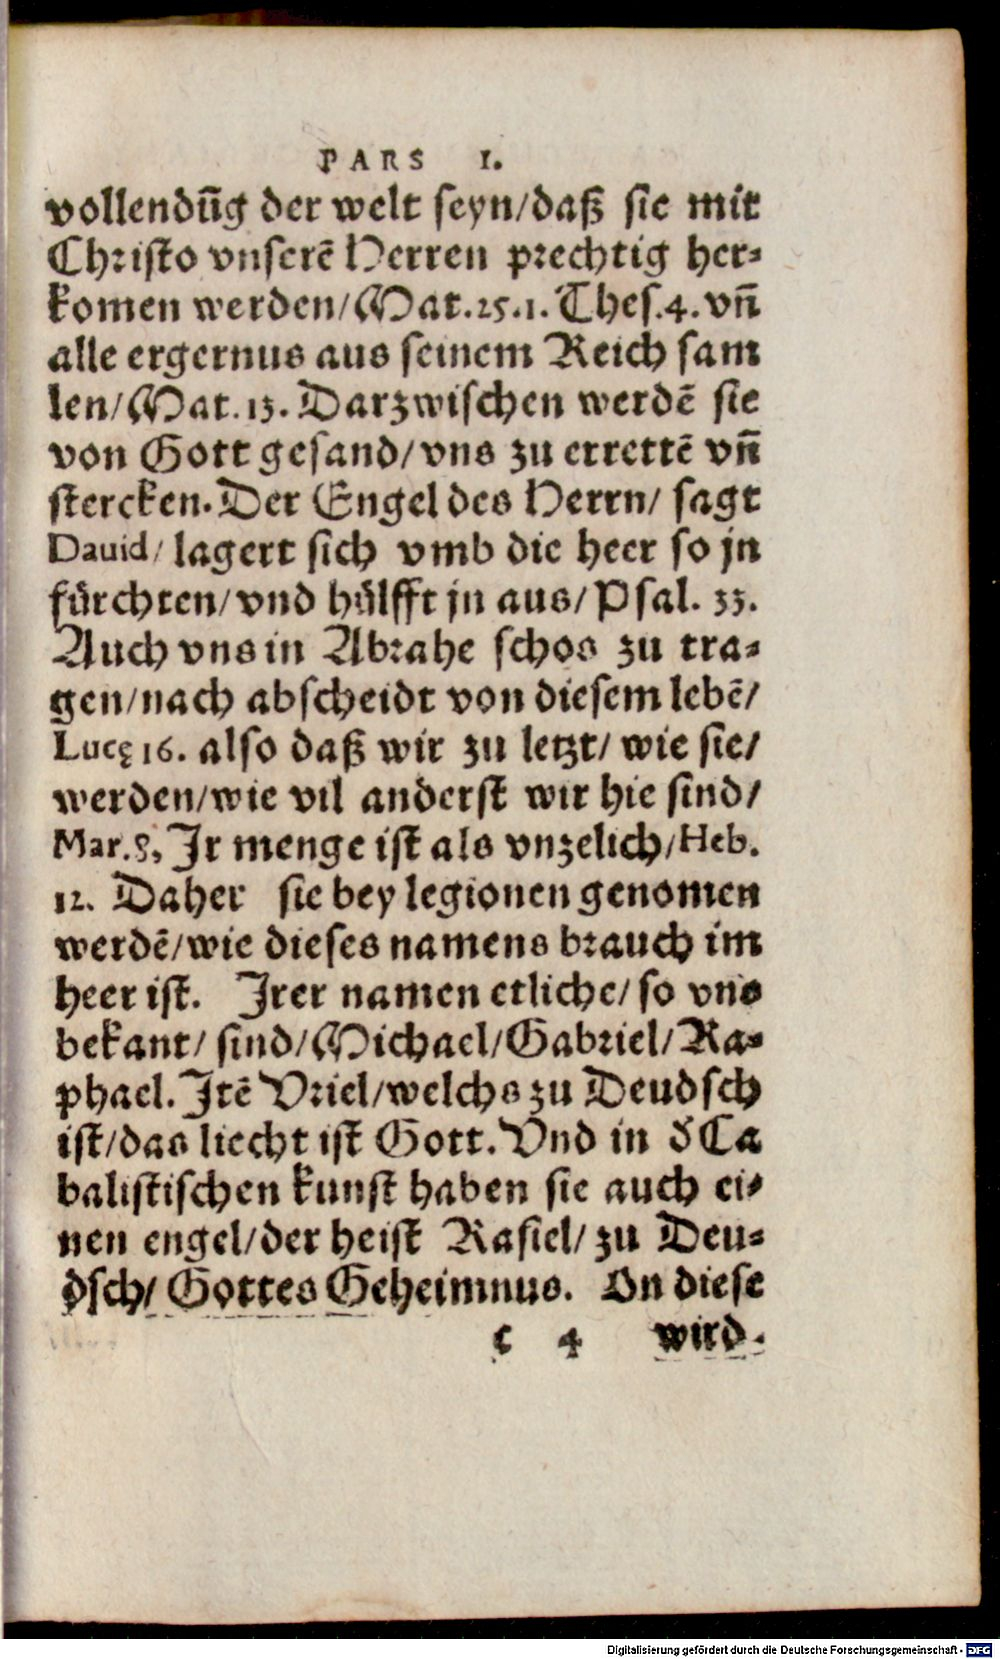 PARS I.
vollendūg der welt seyn/daß sie mit
Christo vnserē Herren prechtig her-
komen werden/Mat.25.1. Thes.4. vn̄
alle ergernus aus seinem Reich sam
len/Mat.13. Darzwischen werdē sie
von Gott gesand/vns zu errettē vn̄
stercken. Der Engel des Herrn/ sagt
Dauid/ lagert sich vmb die heer so jn
fürchten/vnd hülfft jn aus/Psal. 33.
Auch vns in Abrahe schos zu tra-
gen/nach abscheidt von diesem lebē/
Lucę 16. also daß wir zu letzt/ wie sie/
werden/wie vil anderst wir hie sind/
Mar.8, Jr menge ist als vnzelich/Heb.
12. Daher sie bey legionen genomen
werdē/wie dieses namens brauch im
heer ist. Jrer namen etliche/ so vns
bekant/ sind/Michael/Gabriel/Ra-
phael. Jtē Vriel/welchs zu Deudsch
ist/das liecht ist Gott. Vnd in d̕ Ca
balistischen kunst haben sie auch ei-
nen engel/der heist Rasiel/ zu Deu-
dsch/ Gottes Geheimnus. On diese
c 4 wird.
Digitalisierung gefördert durch die Deutsche Forschungsgemeinschaft - DFG